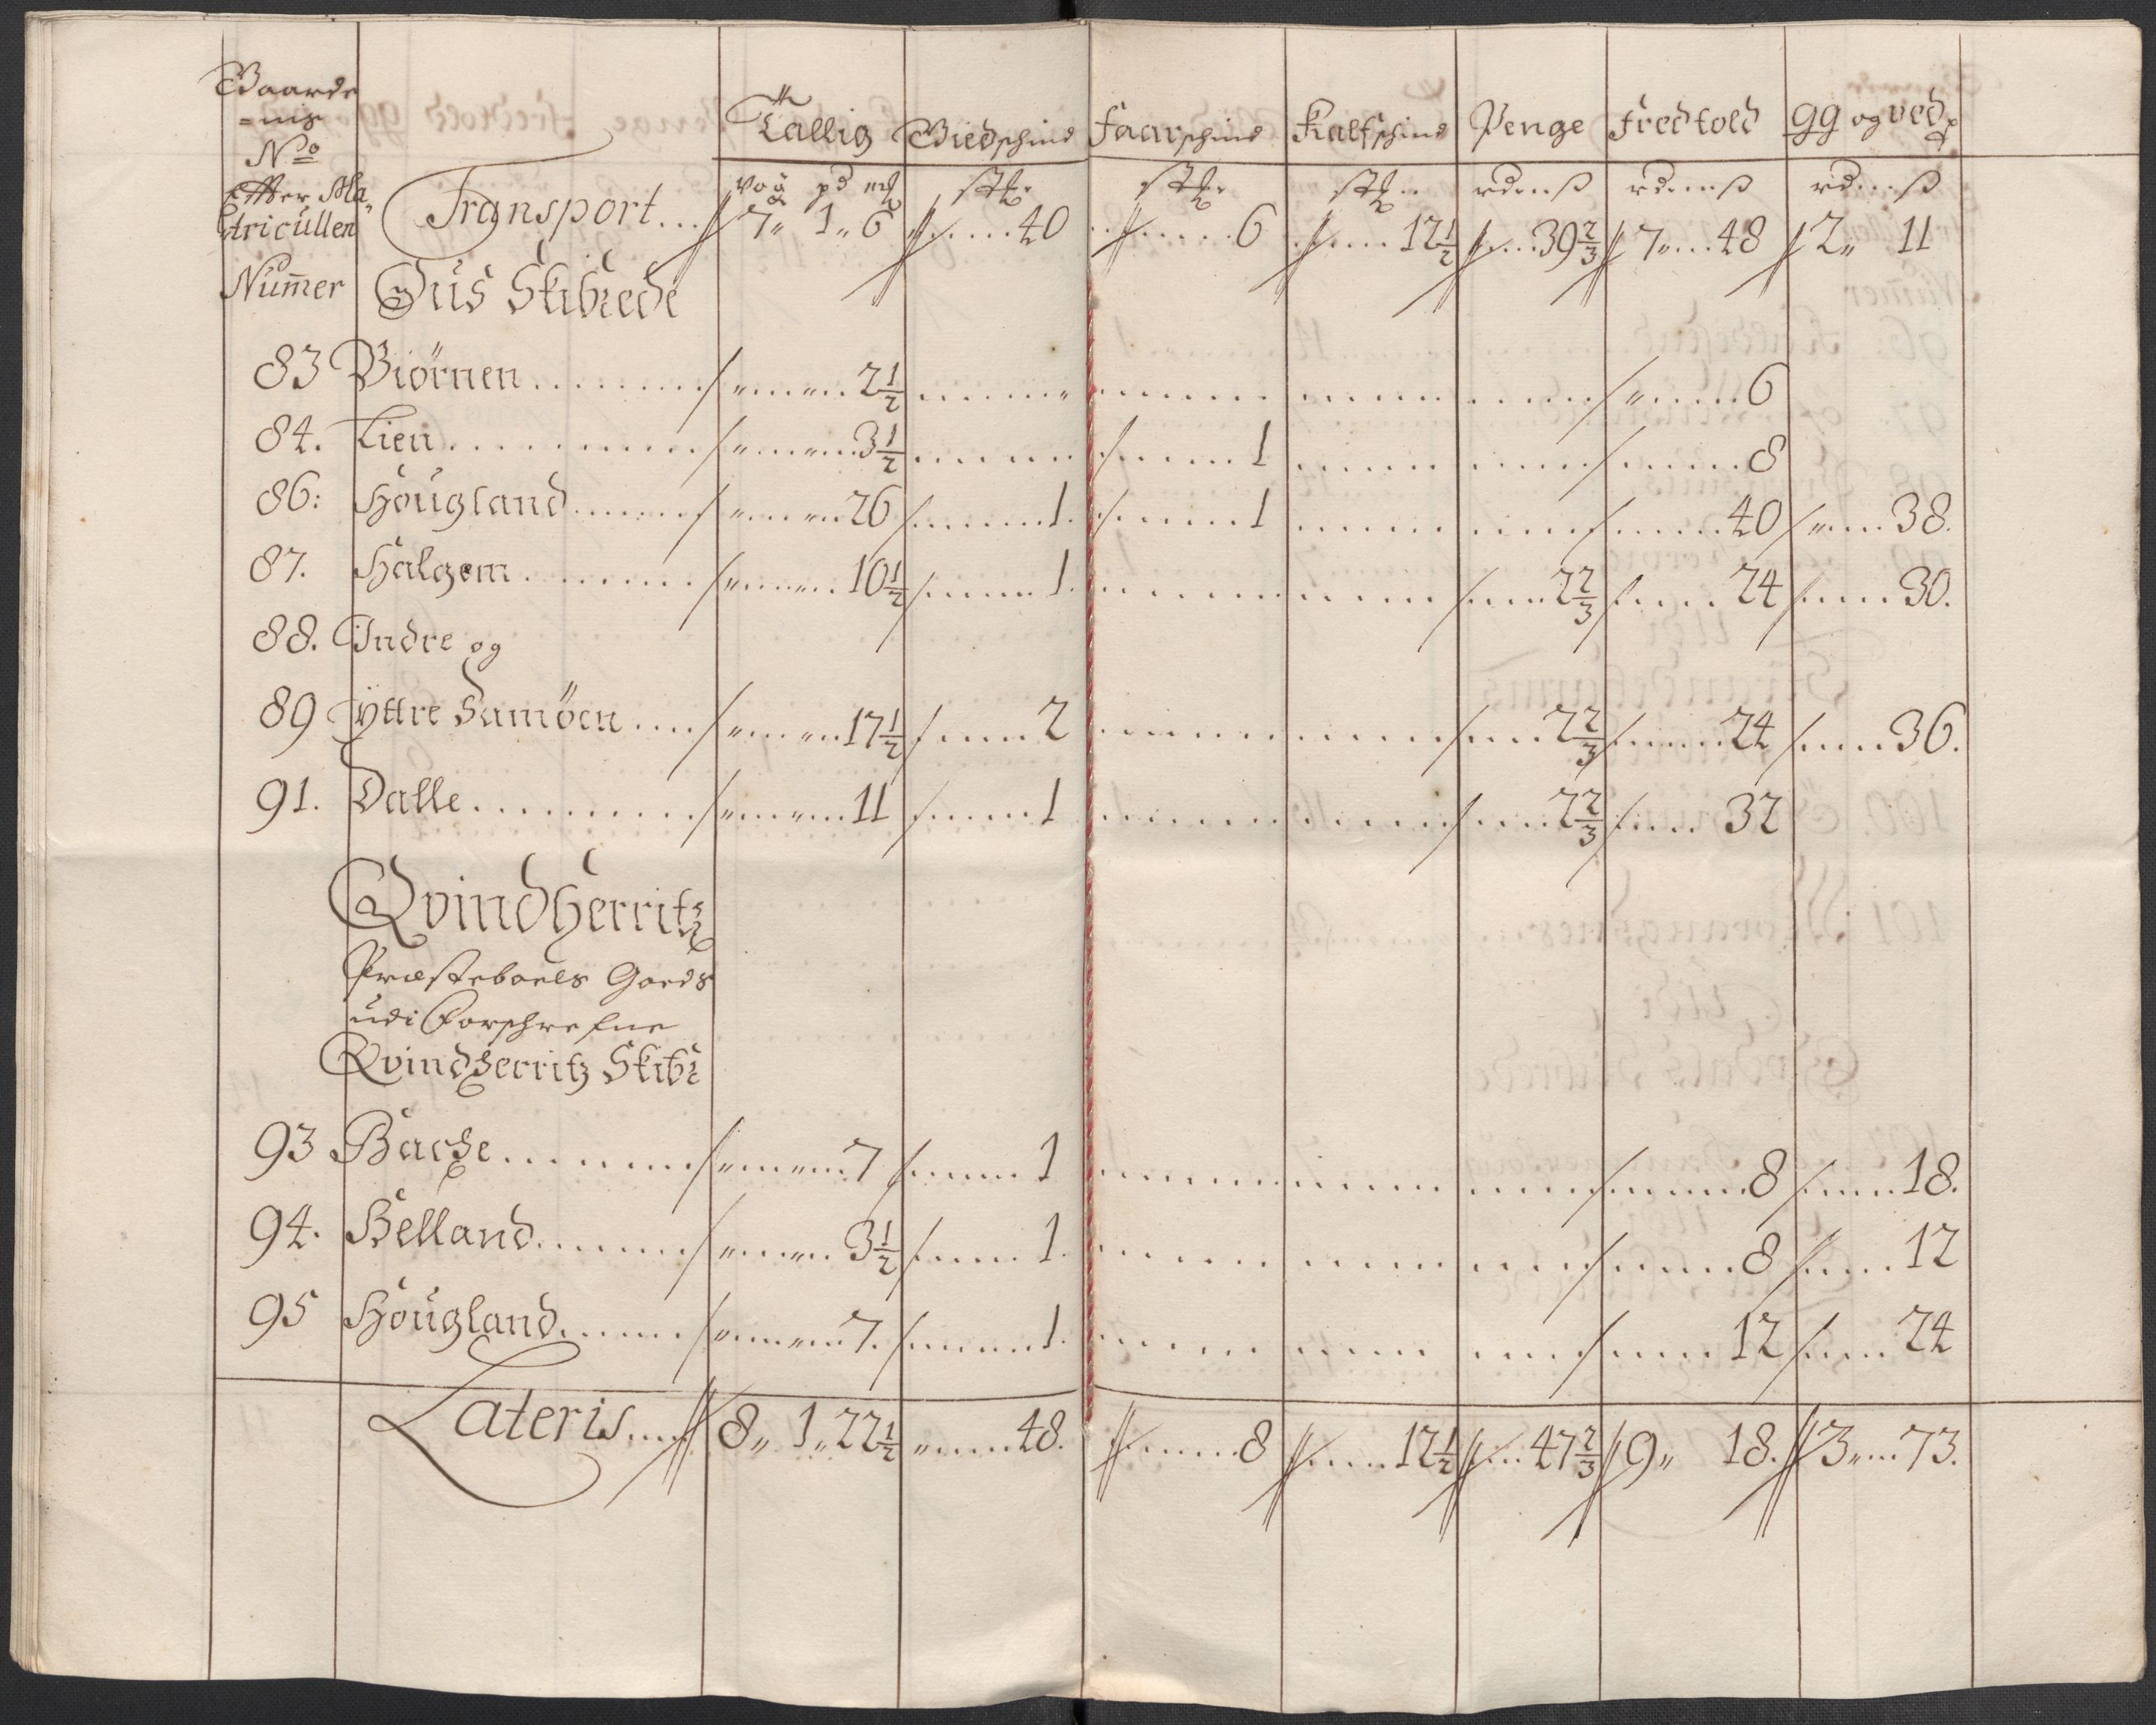 Gaarde
=nis
No
Efter Ma„
tricullen
Nummer
Tallig Giedschind Faarschind Kalfschind Penge Fredtold gg og ved
vog pd mk stk. stk. stk. rd ß rd ß rd ß
Transport... 7„ 1„ 6 40 6 12½ 39⅔ 7„ 48 2„ 11
Ous Skibrede
83 Biörnen 2½ 6
84. Lien 3½ 1 8
86: Hougland 26 1. 1 40 38.
87. Halgem 10½ 1. 2⅔ 24 30.
88. Indre og
89 yttre Samöen 17½ 2 2⅔ 24 36.
91. Dalle 11 1 2⅔ 32
Qvindherritz
Præsteboels Goeds
udi forschrefne
Qvindherritz Skibr
93 Backe 7 1 8 18.
94. Helland 3½ 1. 8 12
95 Hougland 7. 1. 12 24
Lateris.... 8„ 1„ 22½ 48. 8 12½ 47⅔ 9„ 18. 3„ 73.